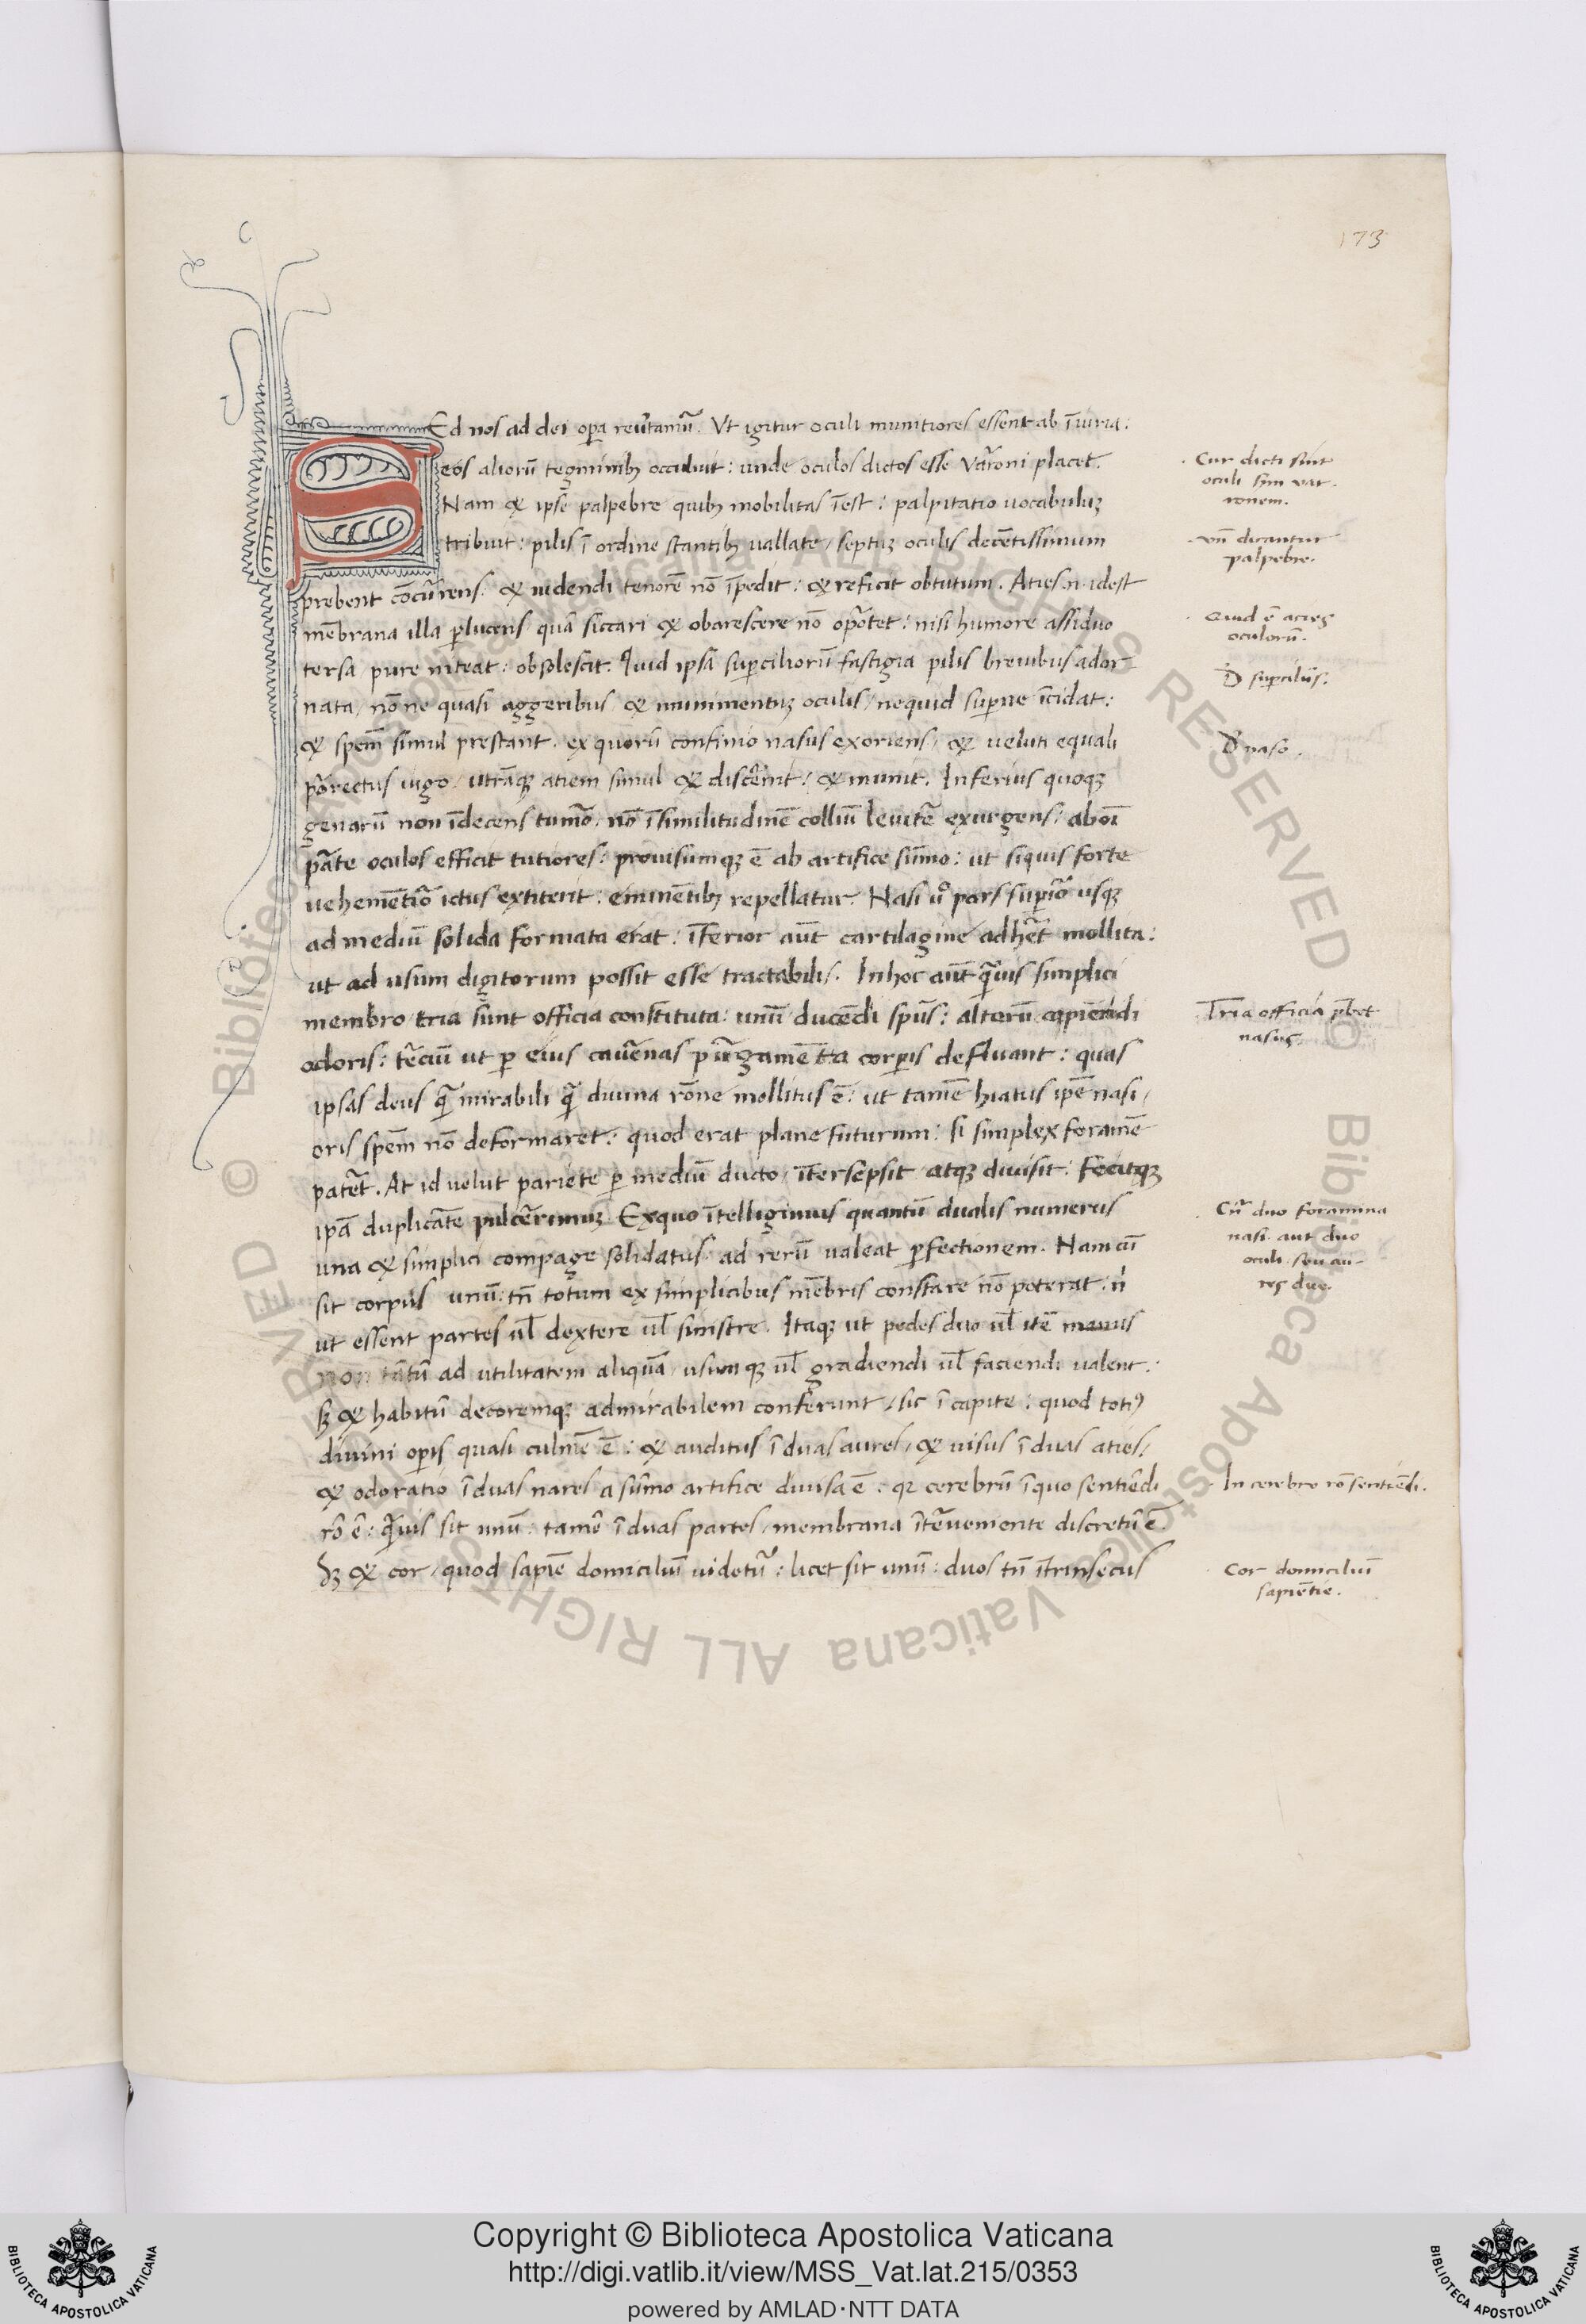 173
SEd nos ad dei opa reũtamũ. Vt igitur oculi munitiores essent ab ĩiuria:
eos aliorũ tegminibȝ occuluit: unde oculos dictos esse Varroni placet.
Nam & ipse palpebre quibȝ mobilitas ĩest: palpitatio uocabuluȝ
tribuit: pilis ĩ ordine stantibȝ uallate / septuȝ oculis decẽtissimum
prebent
mẽbrana illa plucens quã siccari & obarescere nõ oportet: nisi humore assiduo
tersa pure niteat: obsolescit. Quid ipsa supciliorũ fastigia pilis breuibus ador
nata / nõne quasi aggeribus & munimentuȝ oculis / nequid supne ĩcidat:
& spem̃ simul prestant. ex quorũ confinio nasus exoriens / & ueluti equali
porrectus iugo / utrãqȝ atiem simul & discernit: & munit. Inferius quoqȝ
genarũ non ĩdecens tumor nõ ĩ similitudinẽ colliũ leuiter exurgens: ab oĩ
parte oculos efficit tutiores: prouisumqȝ ẽ ab artifice sũmo: ut siquis forte
uehemẽtior ictus extiterit: eminẽtibȝ repellatur. Nasi uº pars superior usqȝ
ad mediũ solida formata erat: ĩferior aũt cartilagine adherẽt mollita:
ut ad usum digitorum possit esse tractabilis. In hoc aũt q̃uis simplici
membro / tria sunt officia constituta: unũ ducẽdi sp̃us: alterũ capiẽdi
odoris: tertiũ ut p eius cauernas purgamẽta corporis defluant: quas
ipsas deus q̃ mirabili q̃ diuina rõne mollitus ẽ: ut tamẽ hiatus ipẽ nasi /
oris spem̃ nõ deformaret: quod erat plane futurum: si simplex foramẽ
pateret. At id uelut pariete p mediũ ducto / ĩtersepsit atqȝ diuisit: Fecitqȝ
ipã duplicate pulcerrimuȝ. Ex quo ĩtelligimus quantũ dualis numerus
una & simplici compage solidatus: ad rerũ ualeat pfectionem. Nam cũ
sit corpus unũ: tñ totum ex simplicibus mẽbris constare nõ poterat: ñ
ut essent partes ul̃ dextere ul̃ sinistre. Itaqȝ ut pedes duo ul̃ itẽ manus
non tãtũ ad utilitatem aliquã / usumqȝ ul̃ gradiendi ul̃ faciendi ualent:
sȝ & habitũ decoremqȝ admirabilem conferunt / sic ĩ capite: quod totiꝰ
diuini opis quasi culmẽ ẽ: & auditus ĩ duas aures / & uisus ĩ duas aties /
& odoratio ĩ duas nares a sũmo artifice diuisa ẽ: qȝ cerebrũ ĩ quo sentiẽdi
rõ ẽ: q̃uis sit unũ: tamẽ ĩ duas partes / membrana ĩteruenente discretũ ẽ.
Sȝ & cor / quod sapiẽ domiciliũ uidetur: licet sit unũ: duos tñ ĩtrinsecus
Cur dicti sint
oculi sm̃ var
ronem.
vñ dicantur
palpebre.
Quid ẽ acies
oculorũ.
D supciliis.
D naso.
Tria officia p̃bet
nasus.
Cũr duo foramina
nasi aut duo
oculi seu au-
res due.
In cerebro rõ sentiẽdi.
Cor domiciliũ
sapiẽtie.
Copyright © Biblioteca Apostolica Vaticana
http://digi.vatlib.it/view/MSS_Vat.lat.215/0353
powered by AMLAD·NTT DATA
BIBLIOTECA APOSTOLICA VATICANA
BIBLIOTECA APOSTOLICA VATICANA